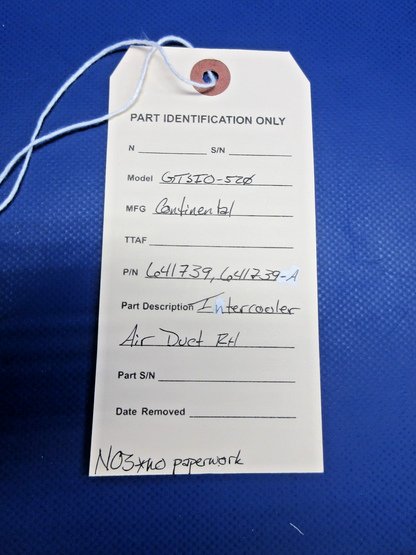 PART IDENTIFICATION ONLY
N S/N
Model GTSIO-520
MFG Continental
TTAF
P/N 641739, 641739-A
Part Description Intercooler
Air Duct RH
Part S/N
Date Removed
NO3*no paperwork